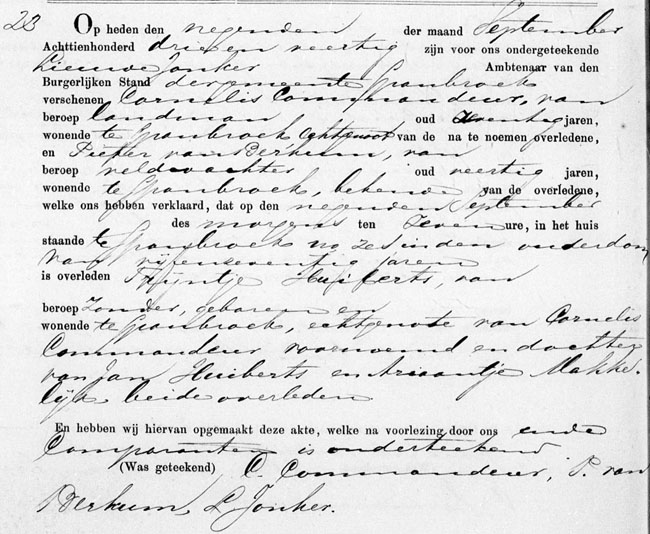 23 Op heden den negenden der maand September
Achttienhonderd drie en veertig zijn voor ons ondergeteekende
Lieuwe Jonker Ambtenaar van den
Burgerlijken Stand der gemeente Spanbroek
verschenen Cornelis Commandeur, van
beroep landman oud zeventig jaren,
wonende te Spanbroek Echtgenoot van de na te noemen overledene,
en Pieter van Berkum, van
beroep veldwachter oud veertig jaren,
wonende te Spanbroek, bekende van de overledene,
welke ons hebben verklaard, dat op den negenden September
des morgens ten zeven ure, in het huis
staande te Spanbroek No zes in den ouderdom
van vijfenzeventig jaren
is overleden Trijntje Huiberts, van
beroep Zonder, geboren en
wonende te Spanbroek, echtgenote van Cornelis
Commandeur voornoemd en dochter
van Jan Huiberts en Ariaantje Makke-
lijk beide overleden
En hebben wij hiervan opgemaakt deze akte, welke na voorlezing door ons ende
Comparanten is onderteekend
(Was geteekend) C. Commandeur, P. van
Berkum, L Jonker.